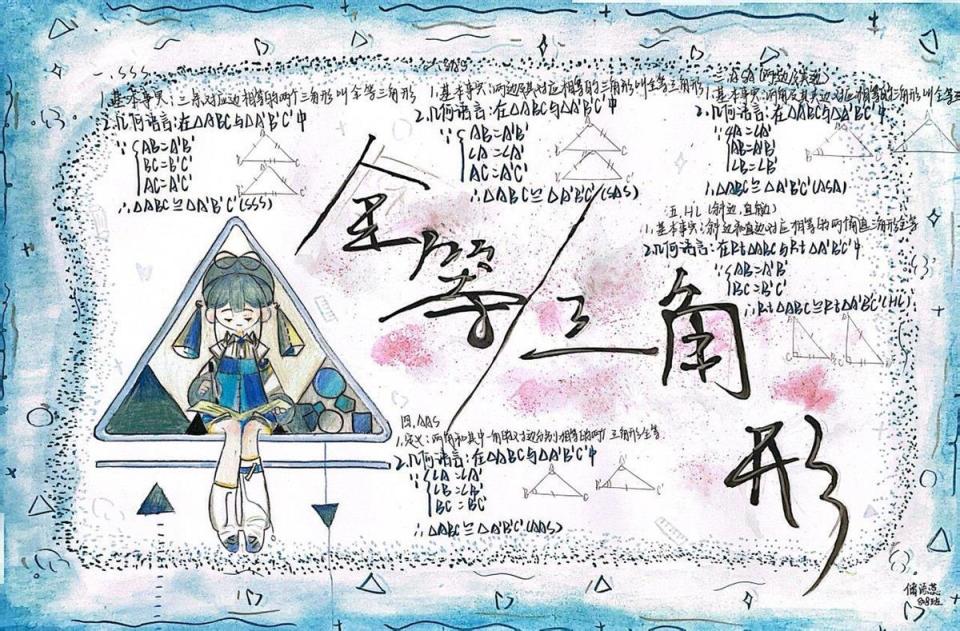 一、SSS
1.基本事实:三条对应边相等的两个三角形叫全等三角形
2.几何语言:在△ABC与△A'B'C'中
∵{AB=A'B'
BC=B'C'
AC=A'C'
∴△ABC≌△A'B'C'(SSS)
二、SAS
1.基本事实:两边及其对应相等的三角形叫全等三角形
2.几何语言:在△ABC与△A'B'C'中
∵{AB=A'B'
∠A=∠A'
AC=A'C'
∴△ABC≌△A'B'C'(SAS)
三、ASA(两边及其边)
1.基本事实:两角及其夹边对应相等的三角形全等
2.几何语言:在△ABC与△A'B'C'中
∵{∠A=∠A'
AB=A'B'
∠B=∠B'
∴△ABC≌△A'B'C'(ASA)
五、HL(斜边,直角边)
1.基本事实:斜边和直边对应相等的两个直角三角形全等
2.几何语言:在Rt△ABC与Rt△A'B'C'中
∵{AB=A'B'
BC=B'C'
∴Rt△ABC≌Rt△A'B'C'(HL)
全等三角形
四、AAS
1.定义:两角和其中一角的对边分别相等的两个三角形全等
2.几何语言:在△ABC与△A'B'C'中
∵{∠A=∠A'
∠B=∠B'
BC=B'C'
∴△ABC≌△A'B'C'(AAS)